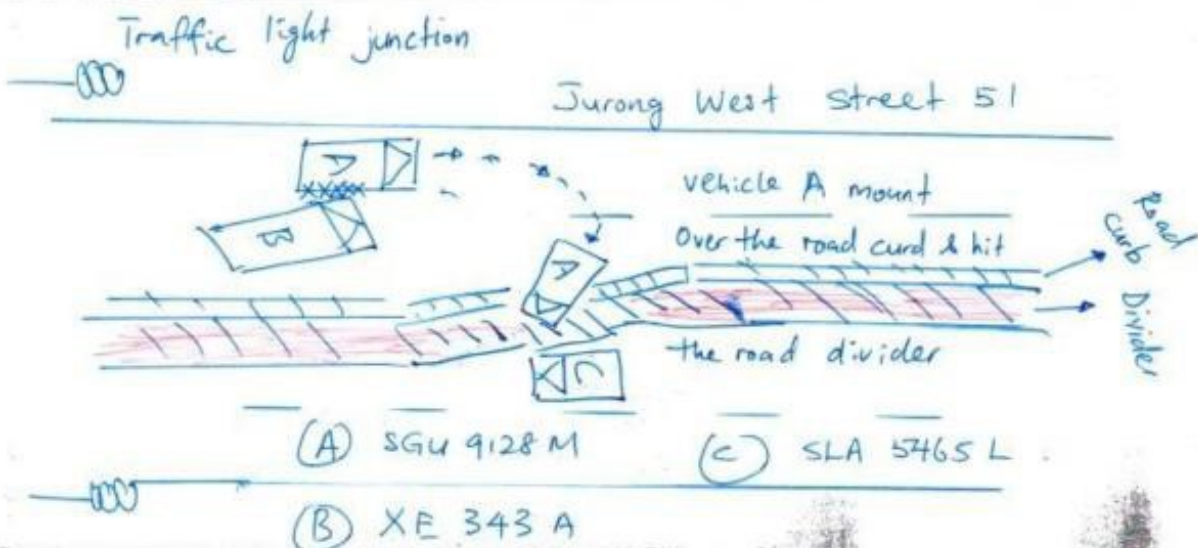 Traffic light junction
Jurong West Street 51
A
B
vehicle A mount
Over the road curd & hit
the road divider
A
C
Road curb
Divider
(A) SGU 9128 M
(C) SLA 5465 L.
(B) XE 343 A